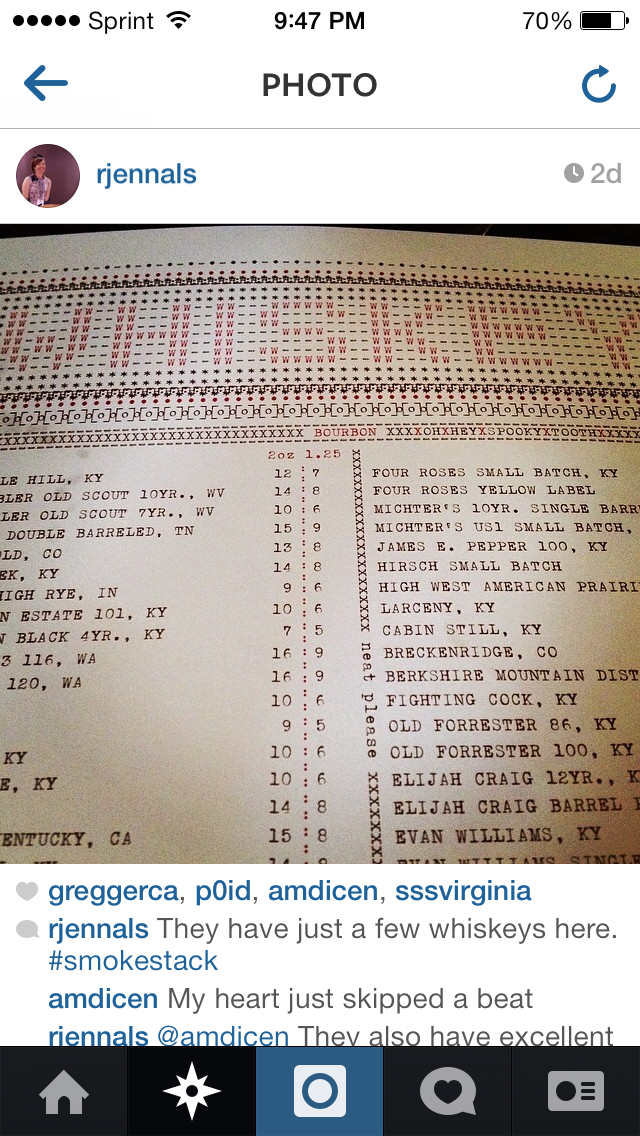 Sprint 9:47 PM 70%
PHOTO
rjennals 2d
WHISKEY
XXXXXXXXXXXXXXXXXXXXXXXXXXXXXXX BOURBON XXXXOHXHEYXSPOOKYXTOOTHXXXXX
2oz 1.25
LE HILL, KY 12 : 7
BLER OLD SCOUT 10YR., WV 14 : 8
LER OLD SCOUT 7YR., WV 10 : 6
DOUBLE BARRELED, TN 15 : 9
OLD, CO 13 : 8
EK, KY 14 : 8
HIGH RYE, IN 9 : 6
N ESTATE 101, KY 10 : 6
N BLACK 4YR., KY 7 : 5
3 116, WA 16 : 9
120, WA 16 : 9
10 : 6
9 : 5
KY 10 : 6
E, KY 10 : 6
14 : 8
KENTUCKY, CA 15 : 8
neat please
FOUR ROSES SMALL BATCH, KY
FOUR ROSES YELLOW LABEL
MICHTER'S 10YR. SINGLE BARR
MICHTER'S US1 SMALL BATCH,
JAMES E. PEPPER 100, KY
HIRSCH SMALL BATCH
HIGH WEST AMERICAN PRAIRI
LARCENY, KY
CABIN STILL, KY
BRECKENRIDGE, CO
BERKSHIRE MOUNTAIN DIST
FIGHTING COCK, KY
OLD FORRESTER 86, KY
OLD FORRESTER 100, KY
ELIJAH CRAIG 12YR., K
ELIJAH CRAIG BARREL
EVAN WILLIAMS, KY
EVAN WILLIAMS SINGLE
greggerca, p0id, amdicen, sssvirginia
rjennals They have just a few whiskeys here.
#smokestack
amdicen My heart just skipped a beat
rjennals @amdicen They also have excellent